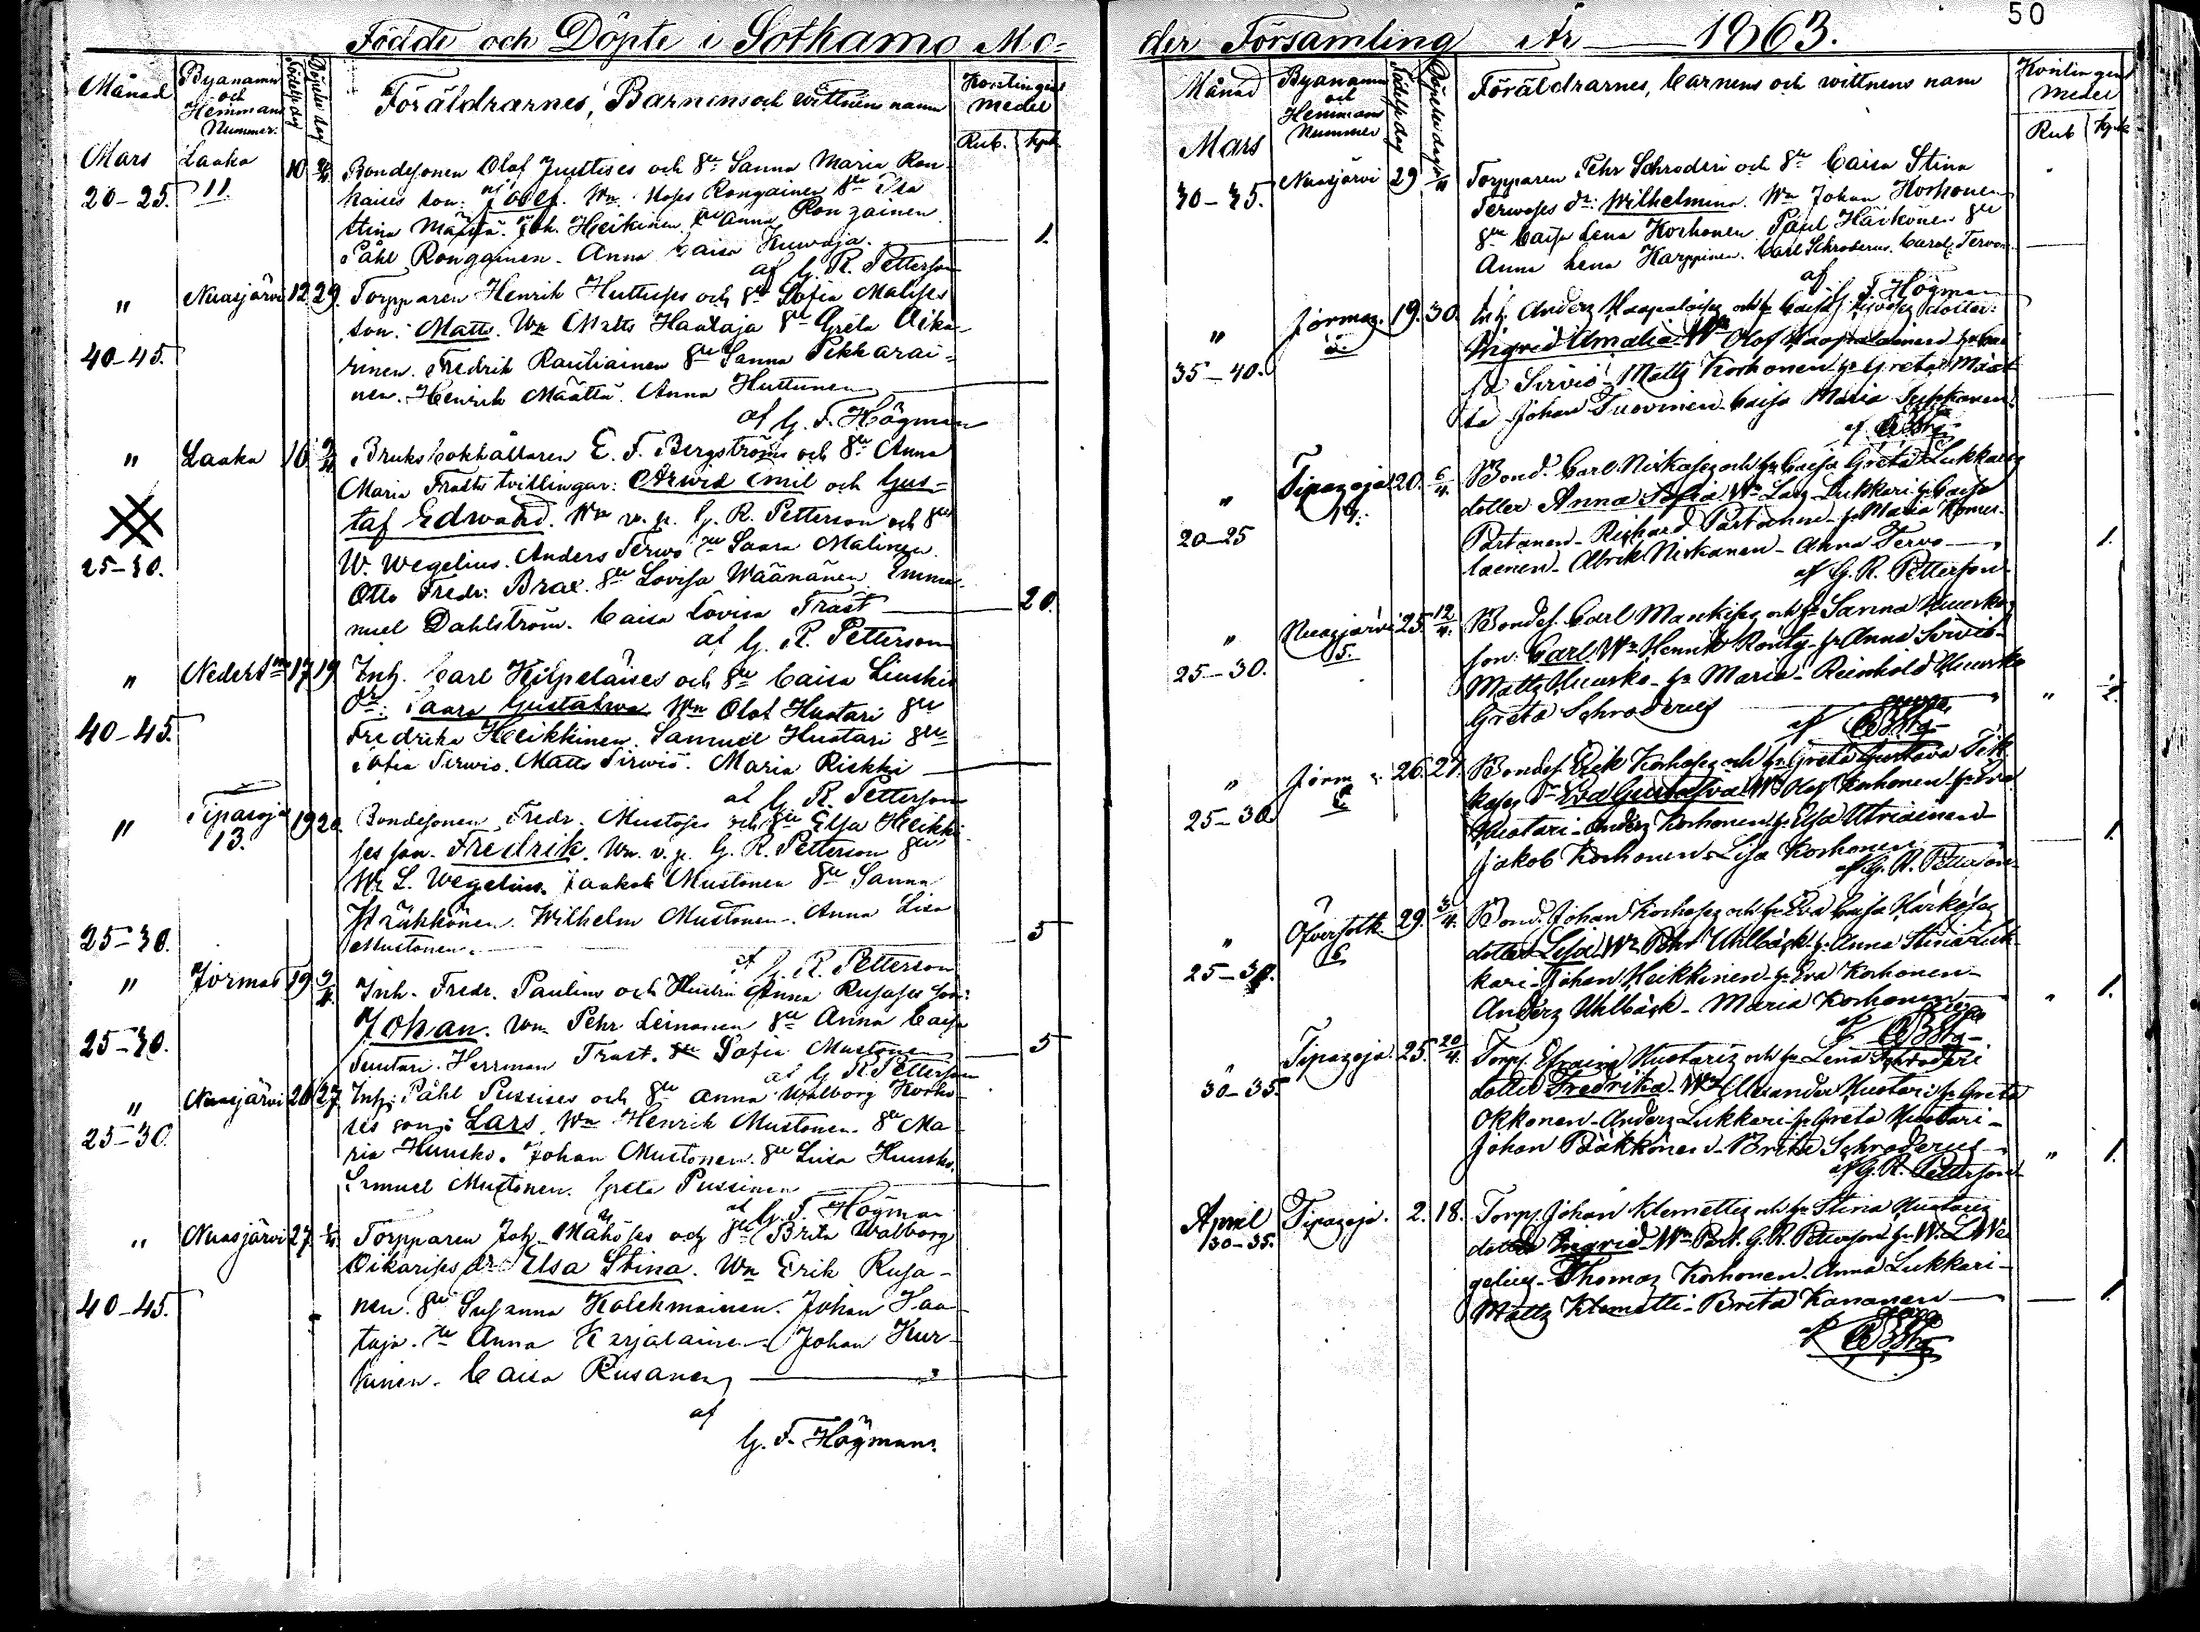 50
Födde och Döpte i Sotkamo Mo=
Månad
Byanamn
och
Hemmans
Nummer.
Födelse dag
Döpelse dag
Föräldrarnes, Barnens och wittnens namn
Kontingent
medel
Rub. Kpk
Mars Laaka 10
20-25. 11
Bondesonen Olof Juttises och Hu Sanna Maria Ron-
kaises son: Josef. Wn. Moses Rongainen Hu Isa
Stina Määttä. Joh. Heikinen Hu Anna Rongainen
Påhl Rongainen - Anna Caisa Kuwaja. 1.
af G. R. Petterson
" Nuasjärvi 12. 29. Torpparen Henrik Huttuses och Hu Sofia Malises
son: Matts. Wn Matts Haataja Hu Greta Oika-
40-45.
rinen. Fredrik Rautiainen Hu Sanna Pekkarai-
nen. Henrik Määttä. Anna Huttunen
af G. F. Högman
" Laaka 10 Bruksbokhållaren E. F. Bergströms och Hu Anna
Maria Trasts tvillingar: Arwid Emil och Gus-
taf Edward. Wn v. p. G. R. Petterson och Hu
25-30.
W. Wegelius. Anders Terwo Hu Saara Malinen.
Otto Fredr: Brax. Hu Lovisa Wäänänen Emma-
nuel Dahlström. Caisa Lovisa Trast 20.
af G. R. Petterson
" Neder S 17 19 Inh. Carl Kilpeläises och Hu Caisa Linskis
dr: Saara Gustafwa Wn Olof Huotari Hu
40-45.
Fredrika Heikkinen. Samuel Huotari Hu
Sofia Sirwio. Matts Sirwiö. Maria Riekki
af G. R. Petterson
" Tipasoja 19 20. Bondesonen Fredr. Mustoses och Hu Elsa Heikki-
13.
ses son. Fredrik. Wn. v. p. G. R. Petterson Hu
W. L. Wegelius. Jaakob Mustonen Hu Sanna
Härkönen. Wilhelm Mustonen. Anna Lisa
25-30. Mustonen. 5
af G. R. Petterson
" Jormas 19 Inh. Fredr. Paulins och Hustru Anna Rusases son:
Johan. Wn Pehr Leinonen Hu Anna Caisa
25-30.
Tuntari. Herrman Trast. Hu Sofia Mustonen 5
af G R Petterson
" Nuasjärvi 26 27 Inh: Påhl Pussises och Hu Anna Walborg Korho-
25-30.
ses son: Lars. Wn Henrik Mustonen. Hu Ma-
ria Huusko. Johan Mustonen. Hu Lisa Huusko.
Samuel Mustonen. Greta Pussinen
af G. F. Högman
" Nuasjärvi 27. Torpparen Joh. Mähöses och Hu Brita Walborg
Oikarises dr Elsa Stina. Wn Erik Rusa-
40-45.
nen. Hu Susanna Kolehmainen. Johan Haa-
taja. Hu Anna Karjalainen. Johan Kur-
kinen. Caisa Rusanen
af
G. F. Högman.
der Församling År 1863.
Månad
Byanamn
och
Hemmans
Nummer
Födelse dag
Döpelse dag
Föräldrarnes, barnens och wittnens namn
Kontingent
medel
Rub Kpk
Mars
30-35. Nuasjärvi 29 Torpparen Pehr Schroderi och Hu Caisa Stina
Terwoses dr: Wilhelmina. Wn Johan Korhonen
Hu Caisa Lena Korhonen Paul Härkönen Hu
Anna Lena Karppinen. Carl Schroderus. Carol. Tervo
af G F Högman
" Jormas. 19. 30. Inh. Anders Haapalaises och Hu Caisa Sirviöses dotter:
35-40.
Ingrid Amalia. Wn Olof Haapalainen Hu Cai-
sa Sirviö. Matts Korhonen Hu Greta Määt-
tä. Johan Tuovinen. Caisa Maria Tuhkanen
" Tipasoja 20. 6/4. Bond. Carl Niskases och Hu Caisa Greta Lukkaris
20-25
dotter Anna Sofia. Wn Lars Lukkari Hu Caisa
Partanen - Richard Partanen - Hu Maria
Abrik Niskanen - Anna Tervo 1.
af G. R. Petterson
" Nuasjärvi 25. 12/4. Bondes. Carl Mankises och Hu Sanna Huuskos
5.
25-30.
son: Carl. Wn Henrik Rönty Hu Anna Sirviö
Matts Huusko - Hu Maria - Reinhold Huusko
Greta Schroderus
af
" 26. 27. Bondes. Erik Korhoses och Hu Greta Gustava Tik-
25-30
kases dr Eva Gustafva. Wn Olof Korhonen Hu Eva
Huotari - Anders Korhonen Hu Elsa Utriainen
Jakob Korhonen - Lisa Korhonen 1.
af G. R. Petterson
" Öfversotk. 29. 3/4. Bond. Johan Korhoses och Hu Eva Caisa Härköses
6
25-30.
dotter Lisa. Wn Pehr Uhlbäck Hu Anna Stina Luk-
kari. Johan Heikkinen Hu Eva Korhonen
Anders Uhlbäck - Maria Korhonen 1.
" Tipasoja. 25. 20/4. Torp. Efraim Huotaris och Hu Lena Schroderi
30-35.
dotter Fredrika. Wn Alexander Huotari Hu Greta
Okkonen - Anders Lukkari Hu Greta Huotari -
Johan Pääkkönen - Brita Schroderus " 1.
af G. R. Petterson
April Tipasoja. 2. 18. Torp. Johan Klemettis och Hu Stina Huotaris
30-35.
dotter Ingrid. Wn Past. G. R. Petterson Hu W. L We-
gelius - Thomas Korhonen. Anna Lukkari -
Matts Klemetti - Brita Kananen 1.
af